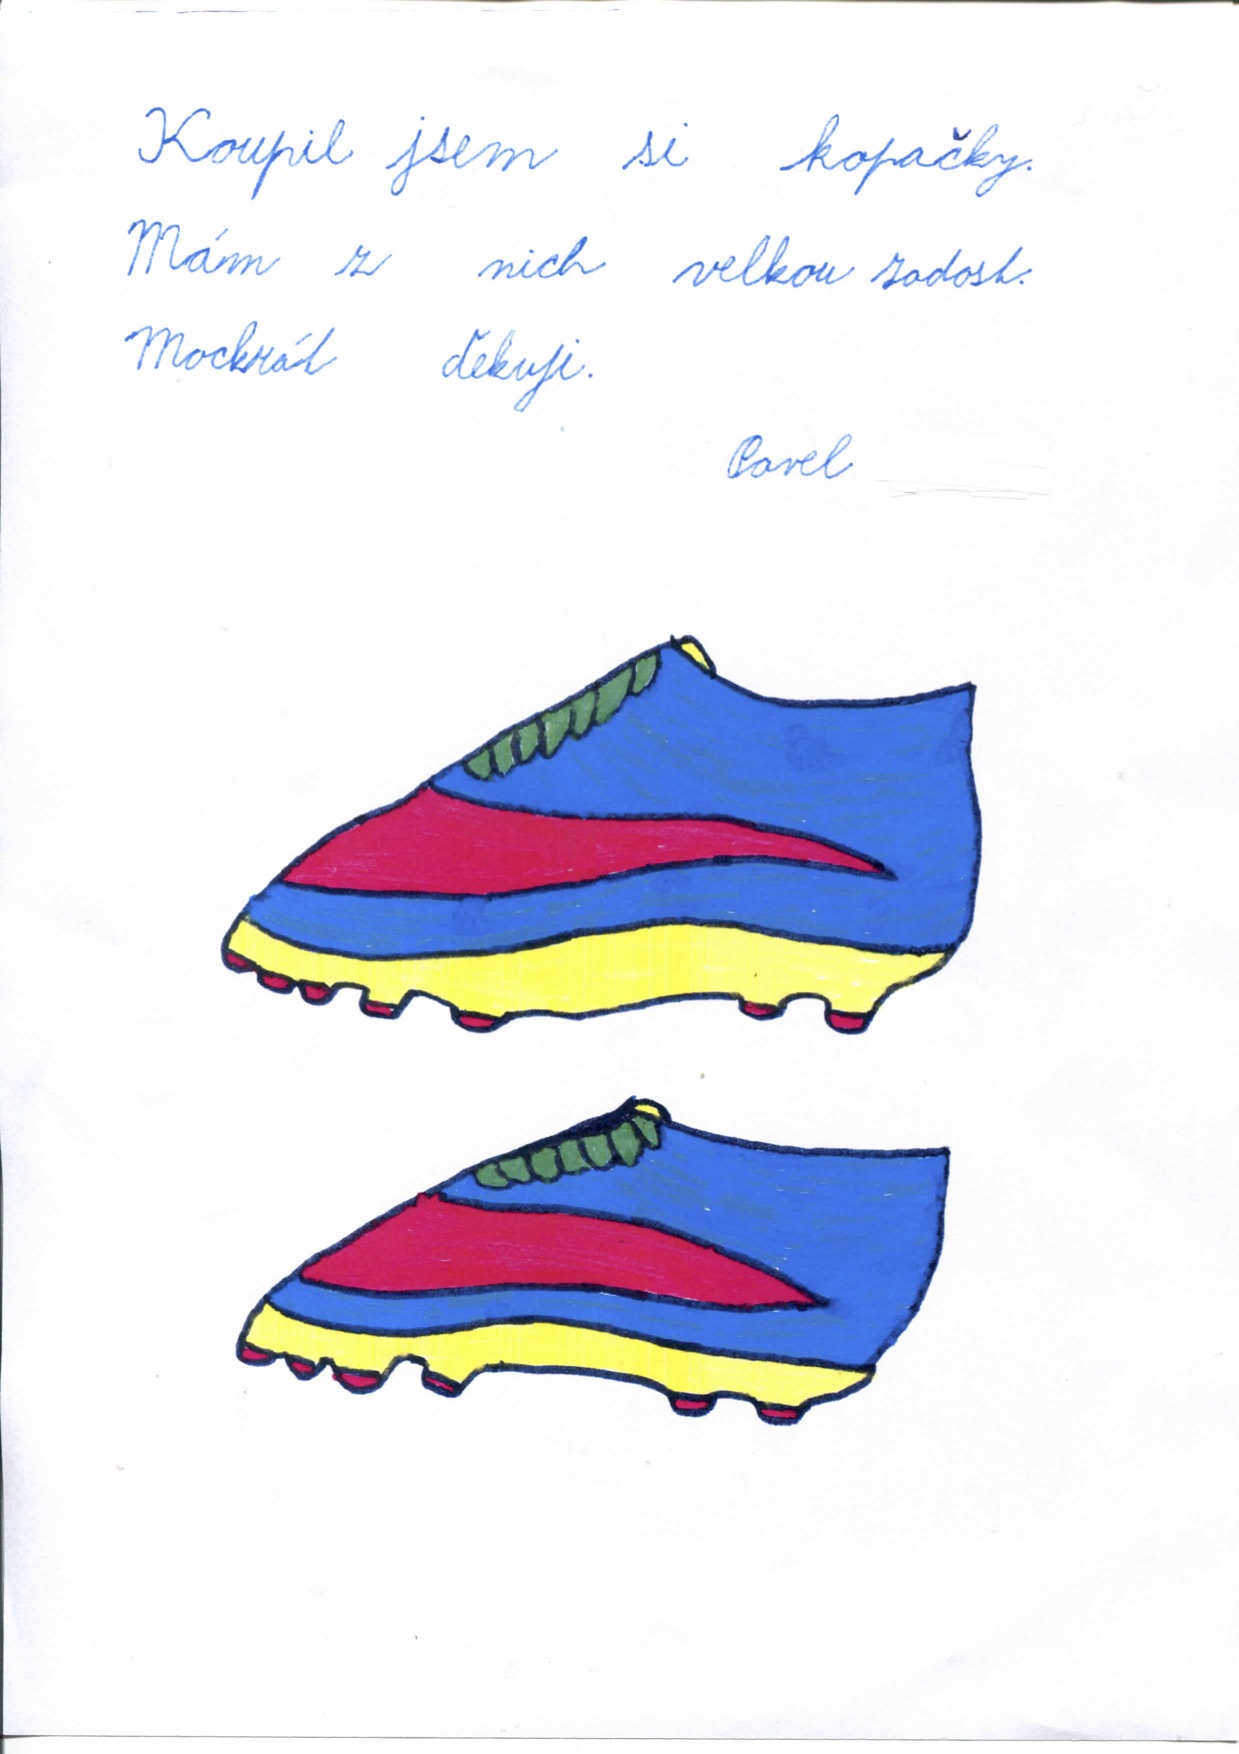 Koupil jsem si kopačky.
Mám z nich velkou radost.
Mockrát ďekuji.
Pavel